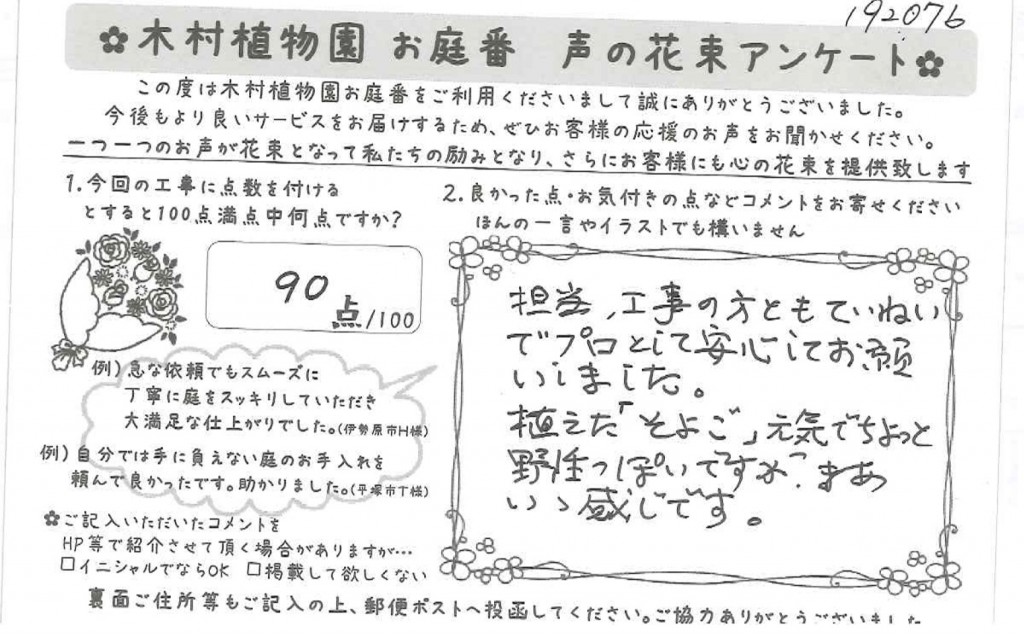 192076
✿木村植物園 お庭番 声の花束アンケート✿
この度は木村植物園お庭番をご利用くださいまして誠にありがとうございました。
今後もより良いサービスをお届けするため、ぜひお客様の応援のお声をお聞かせください。
一つ一つのお声が花束となって私たちの励みとなり、さらにお客様にも心の花束を提供致します
1.今回の工事に点数を付ける
とすると100点満点中何点ですか?
90
点/100
例)急な依頼でもスムーズに
丁寧に庭をスッキリしていただき
大満足な仕上がりでした。(伊勢原市H様)
例)自分では手に負えない庭のお手入れを
頼んで良かったです。助かりました。(平塚市T様)
✿ご記入いただいたコメントを
HP等で紹介させて頂く場合がありますが…
□イニシャルでならOK □掲載して欲しくない
2.良かった点・お気付きの点などコメントをお寄せください
ほんの一言やイラストでも構いません
担当、工事の方ともていねい
でプロとして安心してお願
いしました。
植えた「そよご」元気でちょっと
野性っぽいですが、まあ
いゝ感じです。
裏面ご住所等もご記入の上、郵便ポストへ投函してください。ご協力ありがとうございました